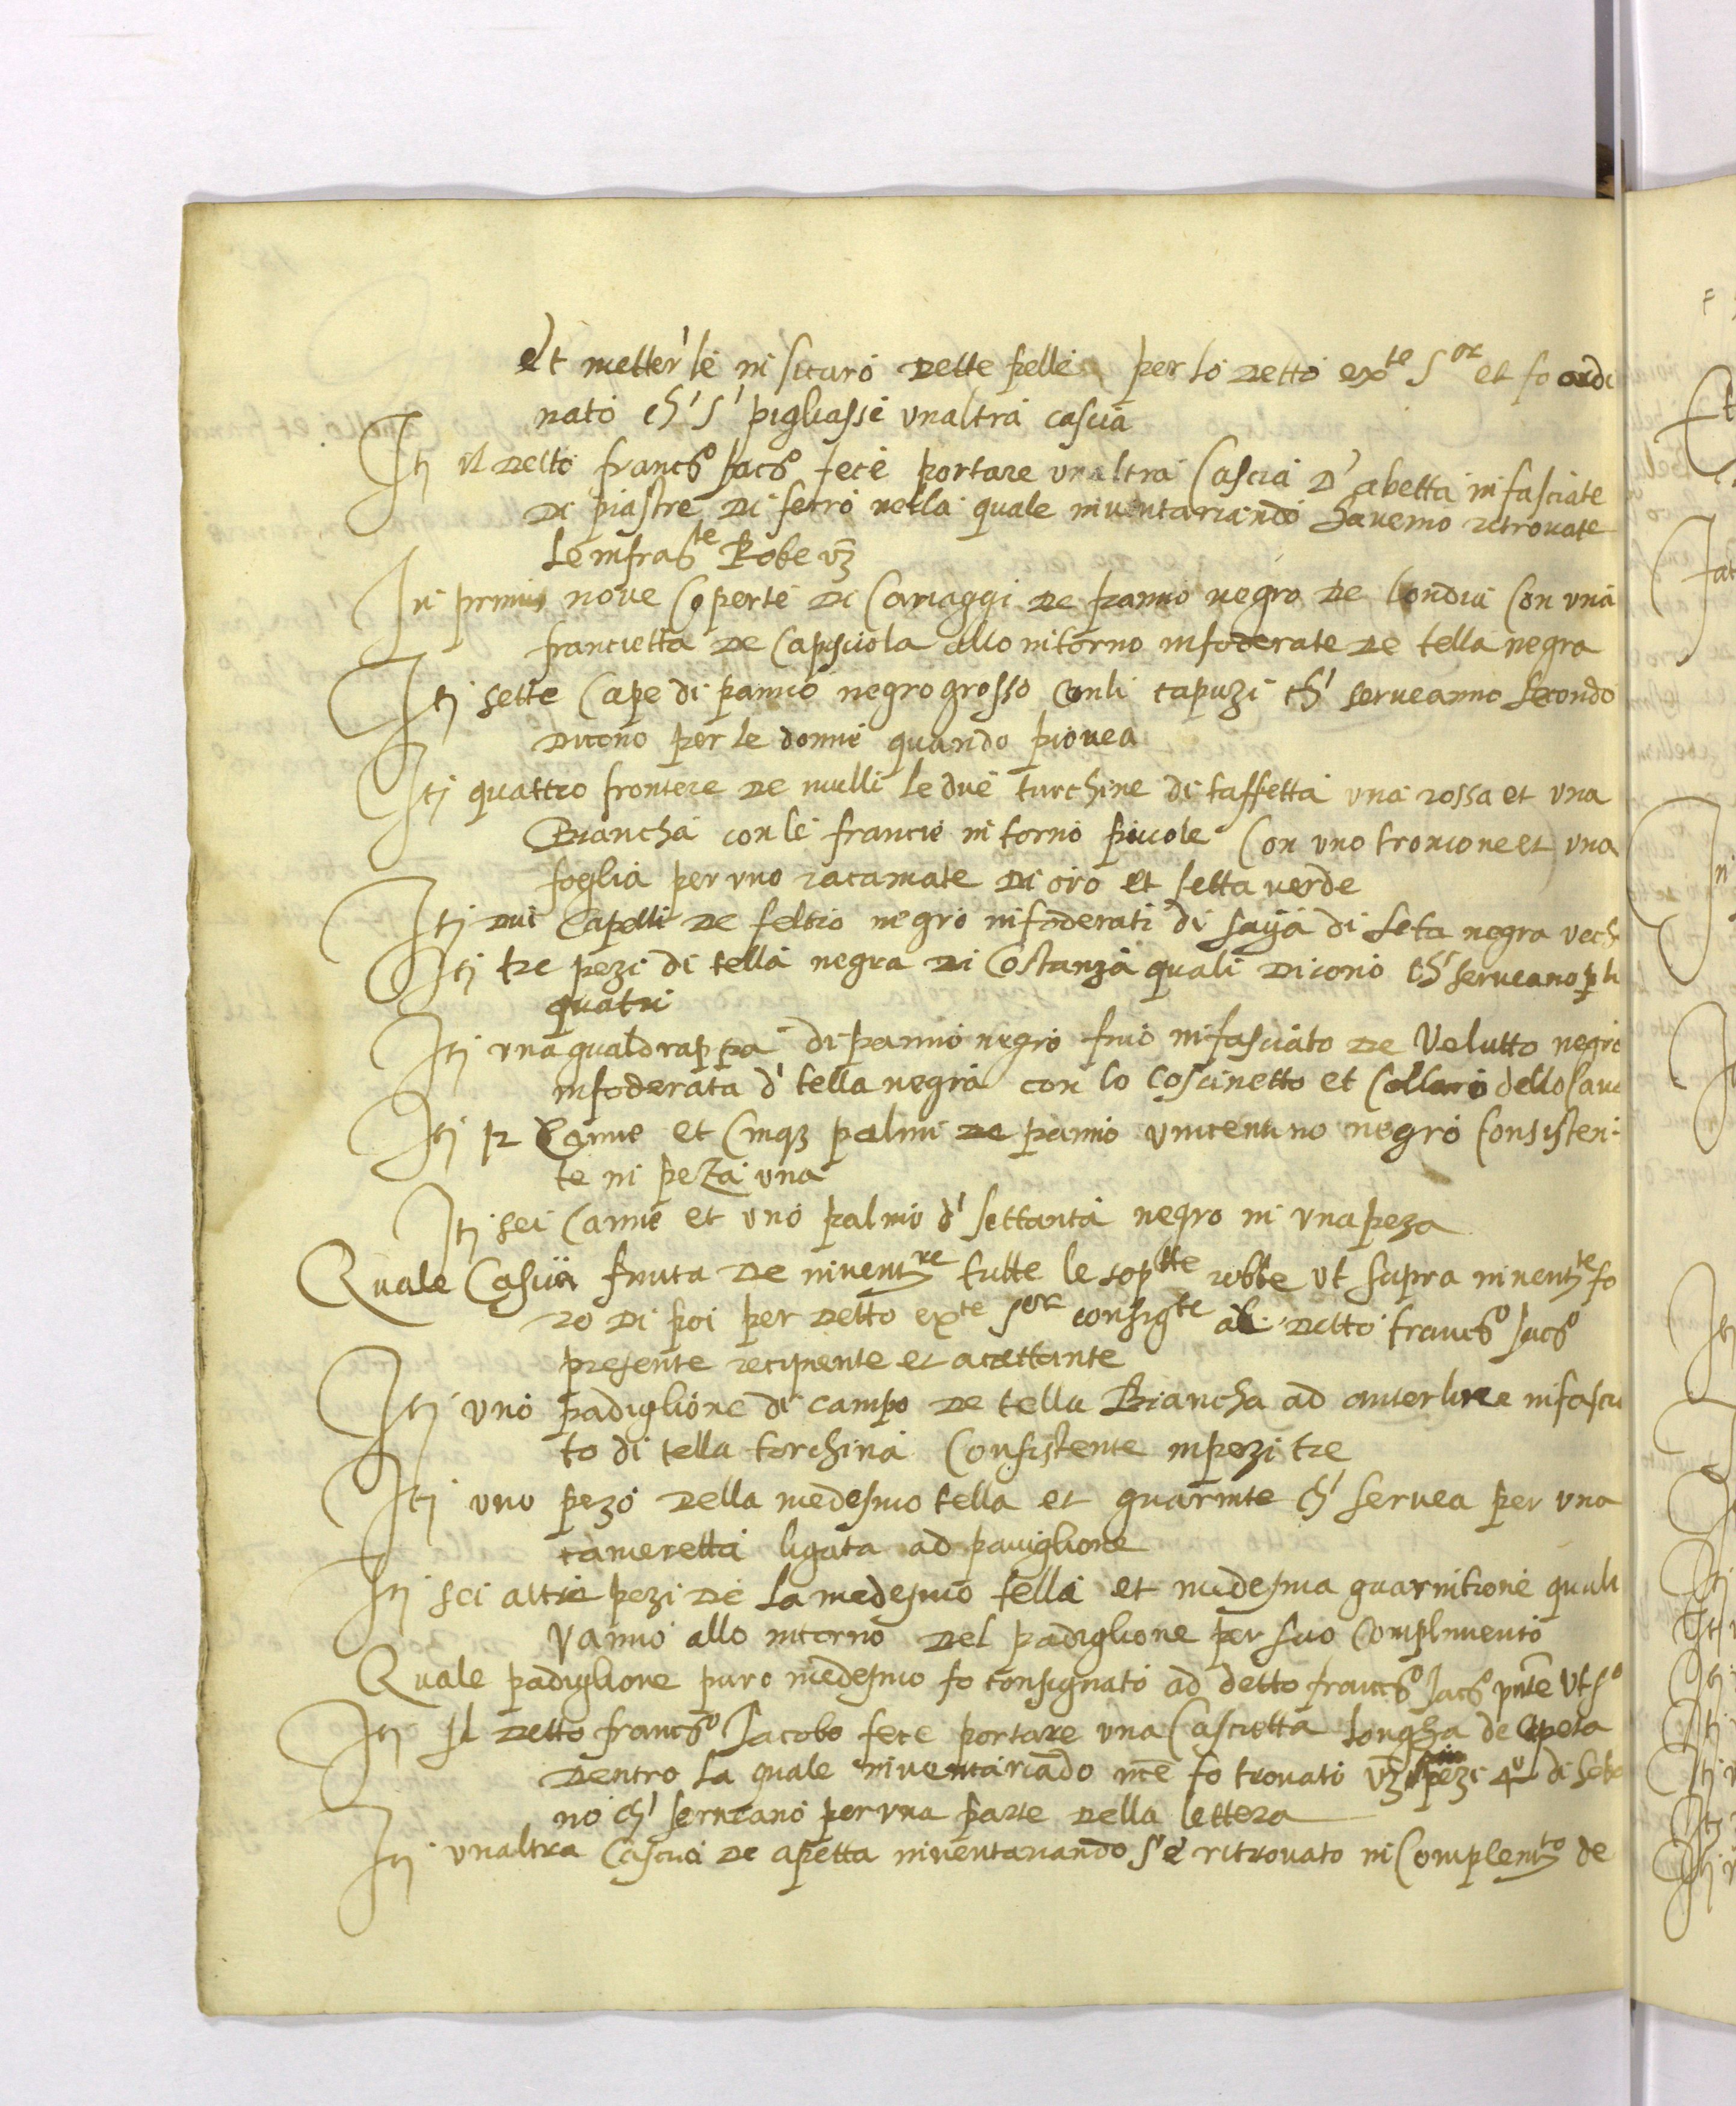 et metter le in sicuro dette pelle per lo detto ex.te S.or et fo ordi
nato ch' s' pigliasse unaltra cascia
Itj il detto franc.o Jac.o fece portare unaltra Cascia d' abetta infasciate
di piastre di ferro nella quale inventariando havemo ritrovate
le infras.te Robe vz
In primis nove Coperte di Cariaggi de panno negro de Londra Con una
francietta de Capisciola allo intorno infoderate de tella negra
Itj sette Cape di panno negro grosso Conli capuzi ch' serveanno secondo
dicono per le donne quando piovea
Itj quattro frontere de mulli le due turchine di taffetta una rossa et una
Biancha con le francie intorno piccole Con uno troncone et una
foglia per uno racamate di oro et setta verde
Itj dui Capelli de feltro negro infoderati di saya di seta negra vech
Itj tre pezi di tella negra di Costanza quali dicono ch' serveano p li
quatri
Itj una gualdrappa di panno negro fino infasciato de Velutto negro
infoderata d' tella negra con lo coscinetto et Collaro dello
Itj 12 Canne et Cinq3 palmi de panno vincentino negro Consisten-
te in peza una
Itj sei Canne et uno palmo d' settanta negro in una peza
Quale Cascia finita de invent.re tutte le sop.tte robbe ut supra invent.te fo
ro di poi per detto ex.te S.or consig.te al detto franc.o Jac.o
presente recipiente et acettante
Itj uno padiglione di campo de tella Biancha ad infascia
to di tella torchina Consistente in pezi tre
Itj uno pezo della medesmo tella et guarnite ch' servea per una
cameretta ligata ad paviglione
Itj sei altre pezi de la medesmo tella et medesma guarnitione quali
Vanno allo intorno del padiglione per suo Complimento
Quale padiglione puro medesmo fo consignato ad detto franc.o Jac.o pnte ut s.a
Itj Il detto franc.o Jacobo fece portare una Cascietta longha de apeta
dentro la quale inventariado nce fo trovati vz pezi 4 di
no ch' serveano per una parte della lettera
Itj unaltra Cascia de apetta inventariando s'è ritrovato in Complem.to de